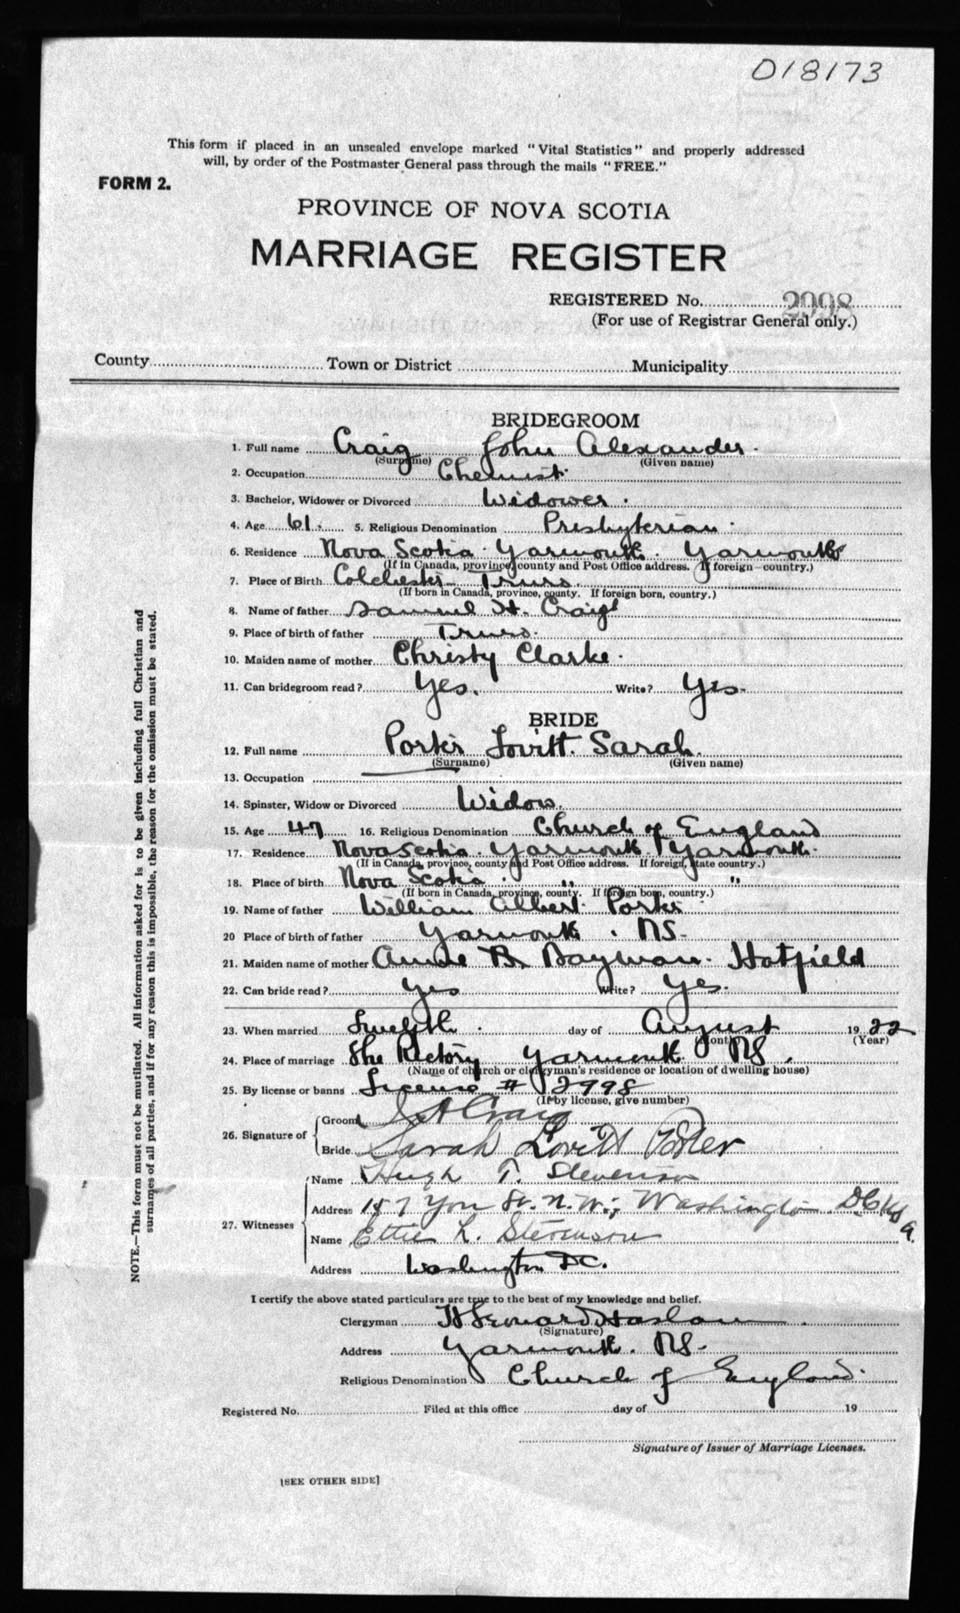 018173
This form if placed in an unsealed envelope marked "Vital Statistics" and properly addressed
will, by order of the Postmaster General pass through the mails "FREE."
FORM 2.
PROVINCE OF NOVA SCOTIA
MARRIAGE REGISTER
REGISTERED No. 2998
(For use of Registrar General only.)
County Town or District Municipality
BRIDEGROOM
1. Full name Craig John Alexander.
(Surname) (Given name)
2. Occupation Chemist.
3. Bachelor, Widower or Divorced Widower.
4. Age 61. 5. Religious Denomination Presbyterian.
6. Residence Nova Scotia. Yarmouth. Yarmouth
(If in Canada, province, county and Post Office address. If foreign—country.)
7. Place of Birth Colchester Truro.
(If born in Canada, province, county. If foreign born, country.)
8. Name of father Samuel H. Craig
9. Place of birth of father Truro.
10. Maiden name of mother Christy Clarke.
11. Can bridegroom read? Yes. Write? Yes.
BRIDE
12. Full name Porter Lovitt Sarah.
(Surname) (Given name)
13. Occupation
14. Spinster, Widow or Divorced Widow.
15. Age 47 16. Religious Denomination Church of England
17. Residence Nova Scotia. Yarmouth. Yarmouth.
(If in Canada, province, county and Post Office address. If foreign, state country.)
18. Place of birth Nova Scotia. " "
(If born in Canada, province, county. If foreign born, country.)
19. Name of father William Albert Porter
20 Place of birth of father Yarmouth. NS.
21. Maiden name of mother Annie B. Hatfield
22. Can bride read? Yes Write? Yes.
23. When married Twelfth. day of August 1922
(Month) (Year)
24. Place of marriage The Rectory Yarmouth NS.
(Name of church or clergyman's residence or location of dwelling house)
25. By license or banns License # 2998
(If by license, give number)
26. Signature of Groom J A Craig
Bride Sarah Lovitt Porter
27. Witnesses Name Hugh T. Stevenson
Address St. N.W., Washington D.C.
Name Ettie L. Stevenson
Address Washington DC.
I certify the above stated particulars are true to the best of my knowledge and belief.
Clergyman H Leonard Haslam
(Signature)
Address Yarmouth. NS.
Religious Denomination Church of England.
Registered No. Filed at this office day of 19
Signature of Issuer of Marriage Licenses.
[SEE OTHER SIDE]
NOTE.—This form must not be mutilated. All information asked for is to be given including full Christian and
surnames of all parties, and if for any reason this is impossible, the reason for the omission must be stated.